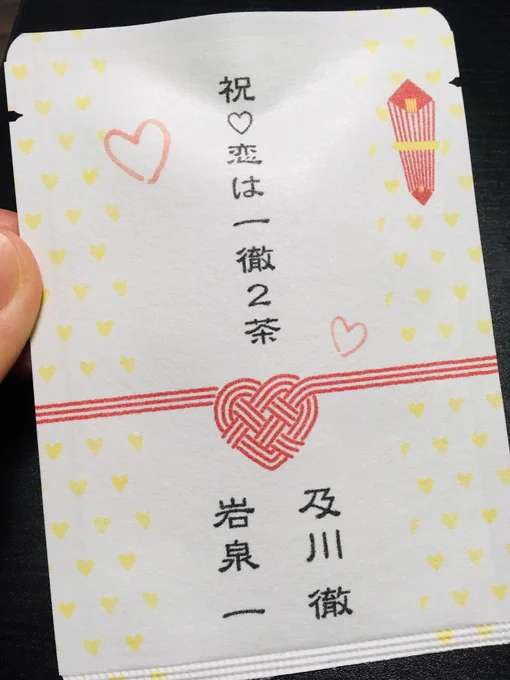 祝♡恋は一徹2茶
及川徹
岩泉一